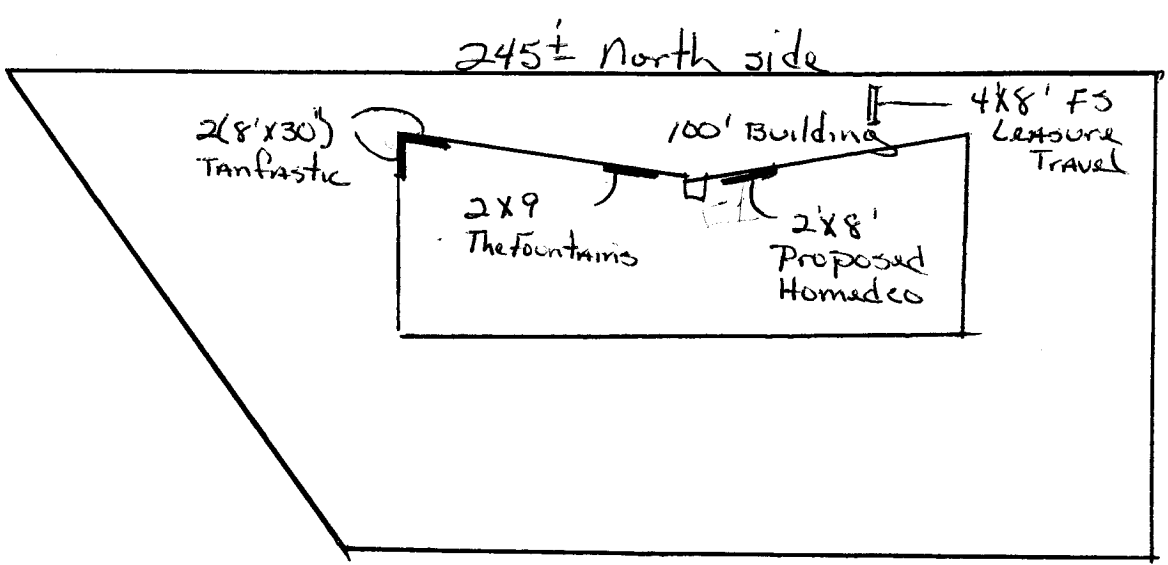 245'± North side
2(8'X30")
TANfAstic
100' Building
4'X8' FS
LeAsure
TrAvel
2X9
The FountAins
2'X8'
Proposed
Homedco